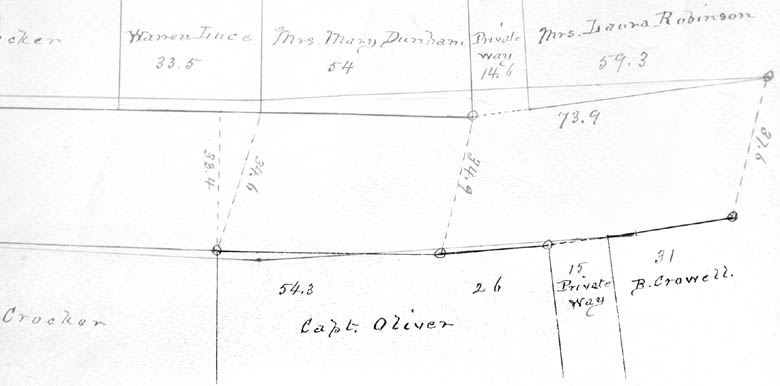 cker
Warren Luce
33.5
Mrs. Mary Dunham
54
Private
way
14.6
Mrs. Laura Robinson
59.3
73.9
33.4
34.6
34.9
37.6
54.3
26
15
Private
Way
31
B. Crowell.
Crocker
Capt. Oliver